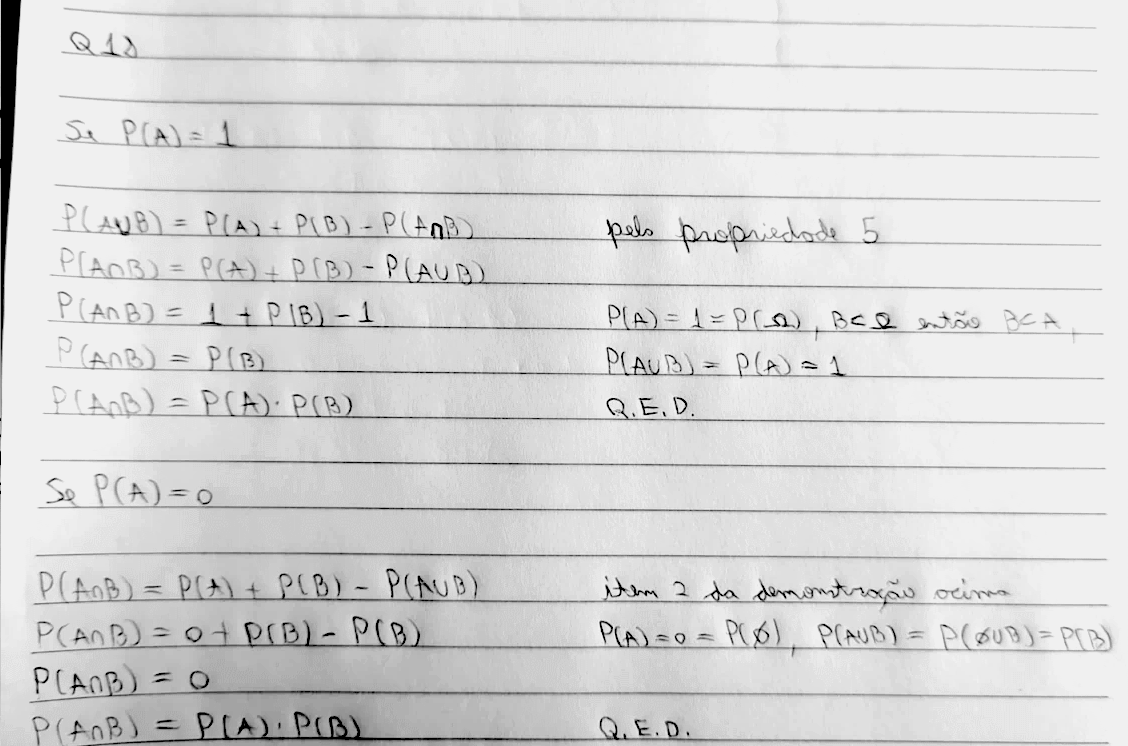 Q18
Se P(A) = 1
P(A∪B) = P(A) + P(B) - P(A∩B) pela propriedade 5
P(A∩B) = P(A) + P(B) - P(A∪B)
P(A∩B) = 1 + P(B) - 1 P(A) = 1 = P(Ω), B⊂Ω então B⊂A,
P(A∩B) = P(B) P(A∪B) = P(A) = 1
P(A∩B) = P(A)·P(B) Q.E.D.
Se P(A) = 0
P(A∩B) = P(A) + P(B) - P(A∪B) item 2 da demonstração acima
P(A∩B) = 0 + P(B) - P(B) P(A) = 0 = P(∅), P(A∪B) = P(∅∪B) = P(B)
P(A∩B) = 0
P(A∩B) = P(A)·P(B) Q.E.D.